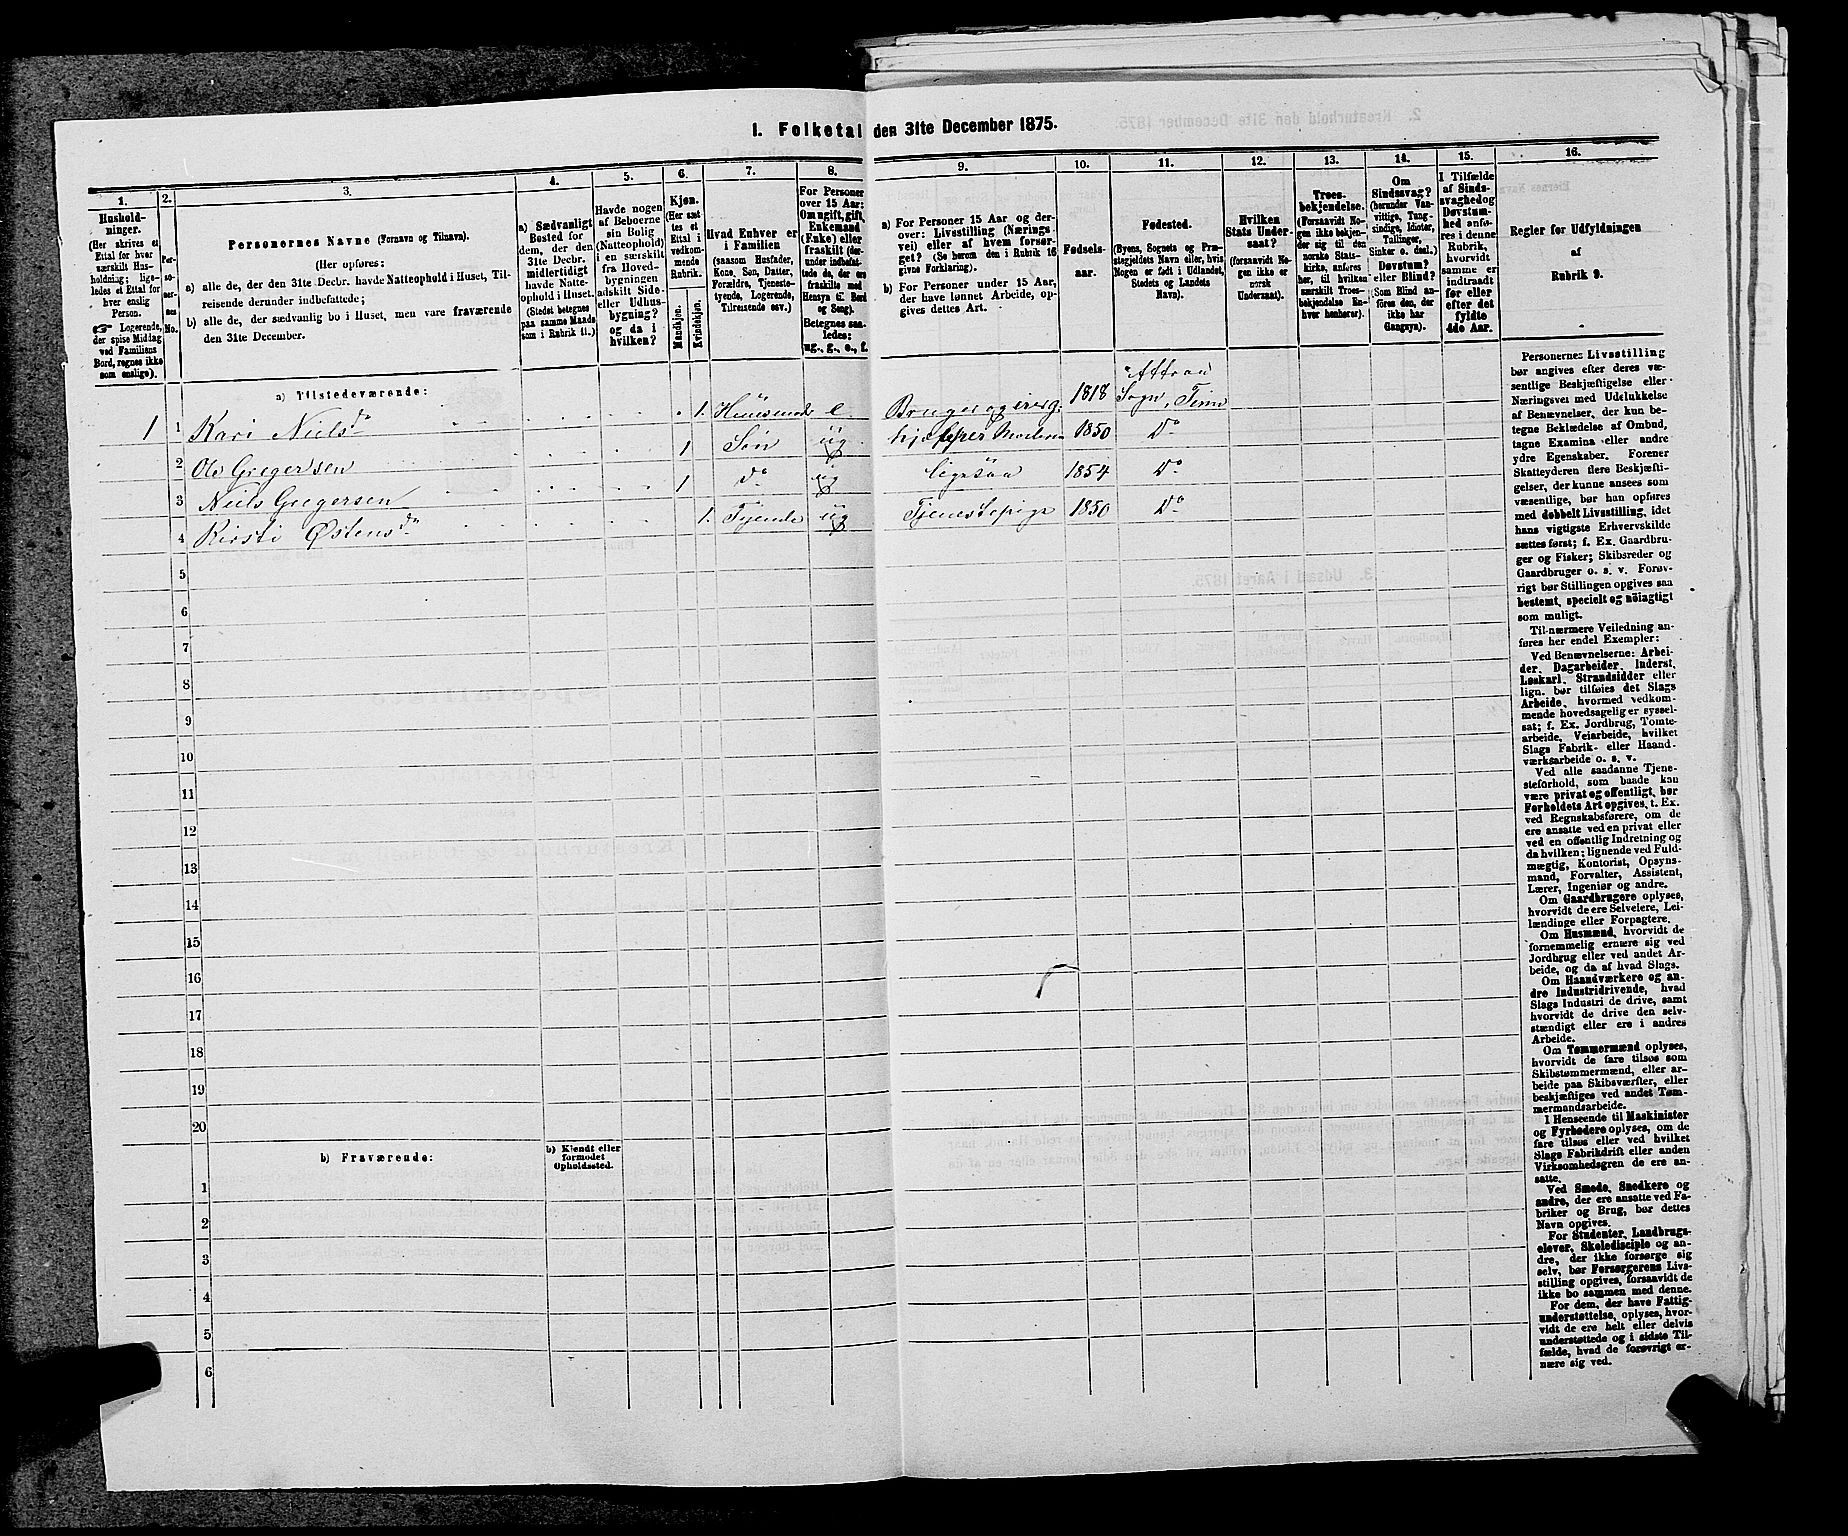 1. Folketal den 31te December 1875.
1.
Hushold-
ninger.
(Her skrives et
Ettal for hver
særskilt Hus-
holdning; lige-
ledes et Ettal for
hver enslig
Person.
☞ Logerende,
der spise Middag
ved Familiens
Bord, regnes ikke
som enslige).
2.
Per-
so-
ner-
nes
No.
3.
Personernes Navne (Fornavn og Tilnavn).
(Her opføres:
a) alle de, der den 31te Decbr. havde Natteophold i Huset, Til-
reisende derunder indbefattede;
b) alle de, der sædvanlig bo i Huset, men vare fraværende
den 31te December.
4.
a) Sædvanligt
Bosted for
dem, der den
31te Decbr.
midlertidigt
havde Natte-
ophold i Huset.
(Stedet betegnes
paa samme Maade
som i Rubrik 11.)
5.
Havde nogen
af Beboerne
sin Bolig
(Natteophold)
i en særskilt
fra Hoved-
bygningen
adskilt Side-
eller Udhus-
bygning?
og da i
hvilken?
6.
Kjøn.
(Her sæt
tes et
Ettal i
vedkom-
mende
Rubrik.
Mandkjøn.
Kvindekjøn.
7.
Hvad Enhver er
i Familien
(saasom Husfader,
Kone, Søn, Datter,
Forældre, Tjeneste-
tyende, Logerende,
Tilreisende osv.)
8.
For Personer
over 15 Aar:
Om ugift, gift,
Enkemand
(Enke) eller
fraskilt (der-
under indbefat-
tede de, der ere
fraskilte med
Hensyn til Bord
og Seng).
Betegnes saa-
ledes:
ug., g., e., f.
9.
a) For Personer 15 Aar og der-
over: Livsstilling (Nærings-
vei) eller af hvem forsør-
get? (Se herom den i Rubrik 16
givne Forklaring).
b) For Personer under 15 Aar,
der have lønnet Arbeide, op-
gives dettes Art.
10.
Fødsels-
aar.
11.
Fødested.
(Byens, Sognets og Præ-
stegjeldets Navn eller, hvis
Nogen er født i Udlandet,
Stedets og Landets
Navn).
12.
Hvilken
Stats Under-
saat?
(forsaavidt No-
gen ikke er
norsk
Undersaat).
13.
Troes-
bekjendelse.
(Forsaavidt No-
gen ikke bekjen-
der sig til den
norske Stats-
kirke, anføres
her, til hvilken
særskilt Troes-
bekjendelse En-
hver henhører).
14.
Om
Sindssvag?
(herunder Van-
vittige, Tung-
sindige, Idioter,
Tullinger,
Sinker o. desl.)
Døvstum?
eller Blind?
(Som Blind an-
føres den, der
ikke har
Gangsyn).
15.
I Tilfælde
af Sinds-
svaghed og
Døvstum-
hed anfø-
res i denne
Rubrik,
hvorvidt
samme er
indtraadt
før eller
efter det
fyldte
4de Aar.
16.
Regler for Udfyldningen
af
Rubrik 9.
a) Tilstedeværende:
1 1 Kari Nielsd. 1. Huusmoder e. Bruger og 1818 Attraa Sogn, Tinn
2 Ole Gregersen 1 Søn ug hjælper Moderen 1850 Do
3 Niels Gregersen 1 do ug ligesaa 1854 Do
4 Kirsti Østensd. 1. Tyende ug Tjenestepige 1850 Do
5
6
7
8
9
10
11
12
13
14
15
16
17
18
19
20
b) Fraværende:
b) Kjendt eller
formodet
Opholdssted.
1
2
3
4
5
6
Personernes Livsstilling
bør angives efter deres væ-
sentlige Beskjæftigelse eller
Næringsvei med Udelukkelse
af Benævnelser, der kun be-
tegne Beklædelse af Ombud,
tagne Examina eller andre
ydre Egenskaber. Forener
Skatteyderen flere Beskjæfti-
gelser, der kunne ansees som
væsentlige, bør han opføres
med dobbelt Livsstilling, idet
hans vigtigste Erhvervskilde
sættes først; f. Ex. Gaardbru-
ger og Fisker; Skibsreder og
Gaardbruger o. s. v. Forøv-
rigt bør Stillingen opgives saa
bestemt, specielt og nøiagtigt
som muligt.
Til nærmere Veiledning an-
føres her endel Exempler:
Ved Benævnelserne: Arbei-
der, Dagarbeider, Inderst,
Løskarl, Strandsidder eller
lign. bør tilføies det Slags
Arbeide, hvormed vedkom-
mende hovedsagelig er syssel-
sat; f. Ex. Jordbrug, Tomte-
arbeide, Veiarbeide, hvilket
Slags Fabrik- eller Haand-
værksarbeide o. s. v.
Ved alle saadanne Tjene-
steforhold, som baade kan
være privat og offentligt, bør
Forholdets Art opgives, t. Ex.
ved Regnskabsførere, om de
ere ansatte ved en privat eller
ved en offentlig Indretning og
da hvilken; lignende ved Fuld-
mægtig, Kontorist, Opsyns-
mand, Forvalter, Assistent,
Lærer, Ingeniør og andre.
Om Gaardbrugere oplyses,
hvorvidt de ere Selveiere, Lei-
lændinge eller Forpagtere.
Om Husmænd, hvorvidt de
fornemmelig ernære sig ved
Jordbrug eller ved andet Ar-
beide, og da af hvad Slags.
Om Haandværkere og an-
dre Industridrivende, hvad
Slags Industri de drive, samt
hvorvidt de drive den selv-
stændigt eller ere i andres
Arbeide.
Om Tømmermænd oplyses,
hvorvidt de fare tilsøs som
Skibstømmermænd, eller ar-
beide paa Skibsværfter, eller
beskjæftiges ved andet Tøm-
mermandsarbeide.
I Henseende til Maskinister
og Fyrbødere oplyses, om de
fare tilsøs eller ved hvilket
Slags Fabrikdrift eller anden
Virksomhedsgren de ere an-
satte.
Ved Smede, Snedkere og
andre, der ere ansatte ved Fa-
briker og Brug, bør dettes
Navn opgives.
For Studenter, Landbrugs-
elever, Skoledisciple og an-
dre, der ikke forsørge sig
selv, bør Forsørgerens Livs-
stilling opgives, forsaavidt de
ikke bo sammen med denne.
For dem, der have Fattig-
understøttelse, oplyses, hvor-
vidt de ere helt eller delvis
understøttede og i sidste Til-
fælde, hvad de forøvrigt er-
nære sig ved.